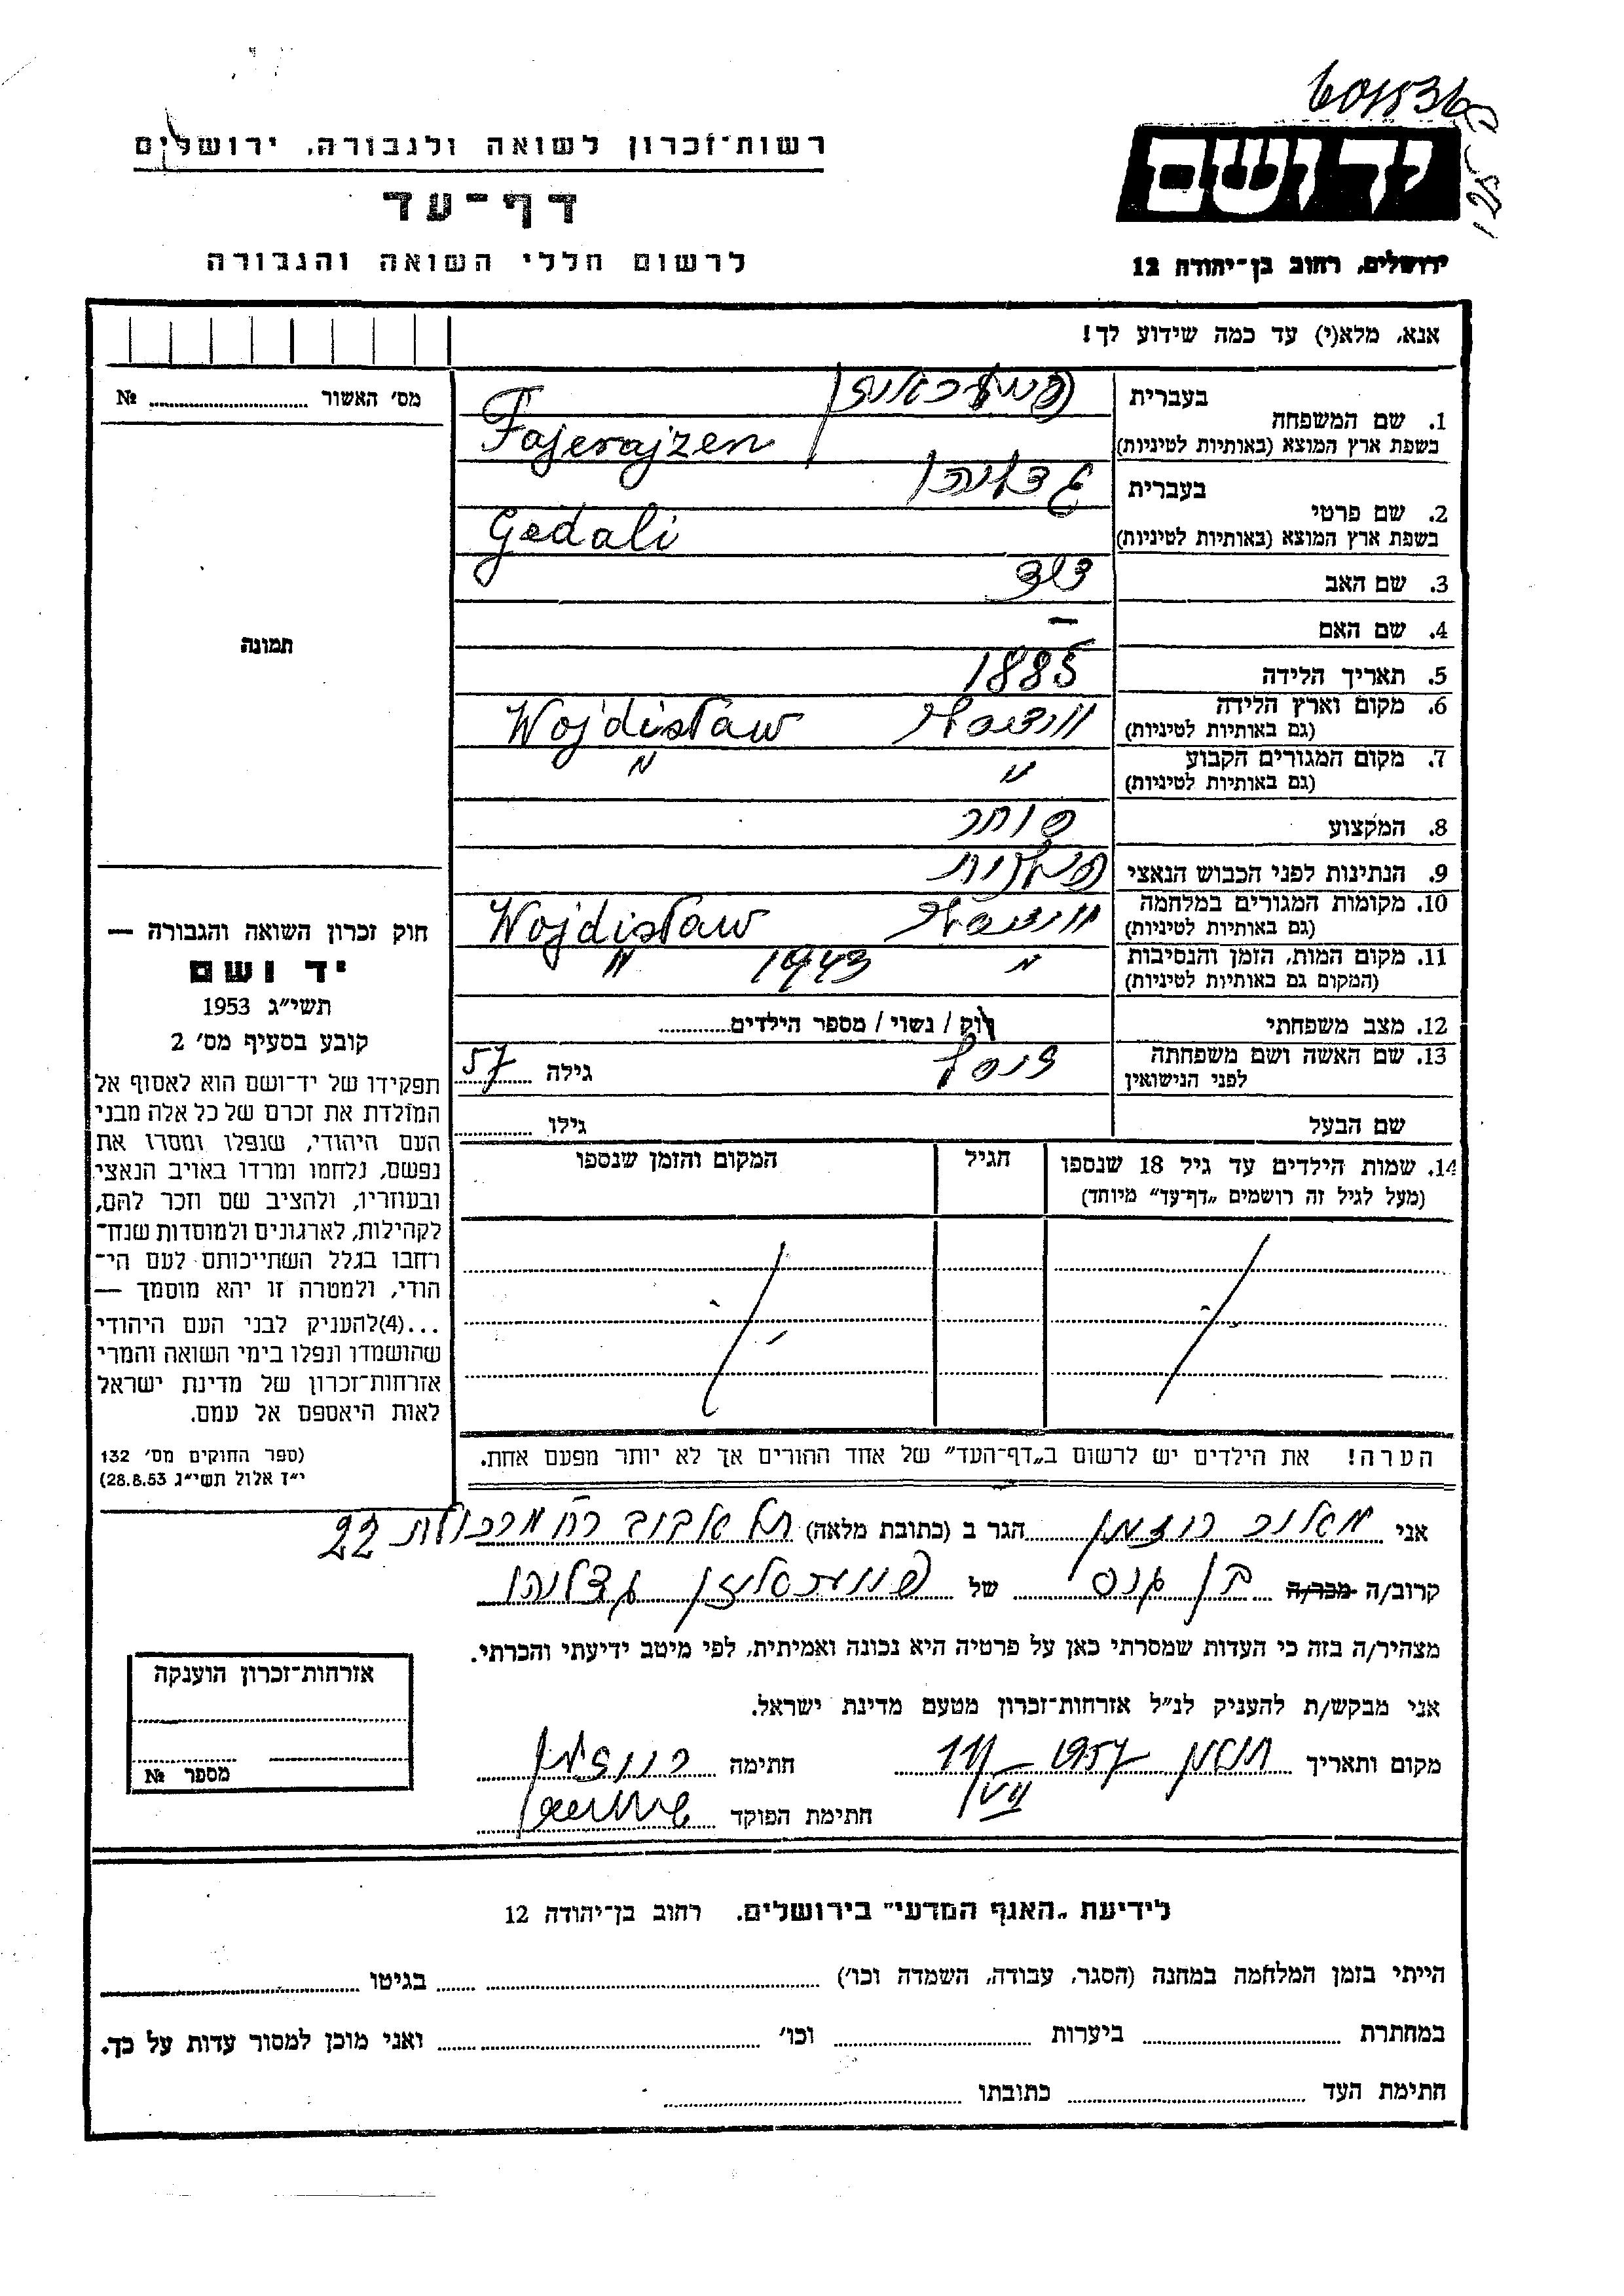 רשות־זכרון לשואה ולגבורה, ירושלים
דף־עד
לרשום חללי השואה והגבורה
יד ושם
ירושלים, רחוב בן־יהודה 12
אנא, מלא(י) עד כמה שידוע לך!
מס׳ האשור № ........
תמונה
1. שם המשפחה בעברית
בשפת ארץ המוצא (באותיות לטיניות) Fajerajzen
2. שם פרטי בעברית גדליהו
בשפת ארץ המוצא (באותיות לטיניות) Gedali
3. שם האב דוד
4. שם האם —
5. תאריך הלידה 1885
6. מקום וארץ הלידה Wojdisław
(גם באותיות לטיניות)
7. מקום המגורים הקבוע " "
(גם באותיות לטיניות)
8. המקצוע סוחר
9. הנתינות לפני הכבוש הנאצי פולנית
10. מקומות המגורים במלחמה Wojdisław
(גם באותיות לטיניות)
11. מקום המות, הזמן והנסיבות " 1943 "
(המקום גם באותיות לטיניות)
12. מצב משפחתי רוק / נשוי / מספר הילדים........
13. שם האשה ושם משפחתה גילה 57
לפני הנישואין
שם הבעל גילו ........
14. שמות הילדים עד גיל 18 שנספו הגיל המקום והזמן שנספו
(מעל לגיל זה רושמים „דף־עד” מיוחד)
הערה! את הילדים יש לרשום ב„דף־העד” של אחד ההורים אך לא יותר מפעם אחת.
חוק זכרון השואה והגבורה —
יד ושם
תשי״ג 1953
קובע בסעיף מס׳ 2
תפקידו של יד־ושם הוא לאסוף אל
המולדת את זכרם של כל אלה מבני
העם היהודי, שנפלו ומסרו את
נפשם, נלחמו ומרדו באויב הנאצי
ובעוזריו, ולהציב שם וזכר להם,
לקהילות, לארגונים ולמוסדות שנח־
רחבו בגלל השתייכותם לעם הי־
הודי, ולמטרה זו יהא מוסמך —
...(4)להעניק לבני העם היהודי
שהושמדו ונפלו בימי השואה והמרי
אזרחות־זכרון של מדינת ישראל
לאות היאספם אל עמם.
(ספר החוקים מס׳ 132
י״ז אלול תשי״ג 28.8.53)
אני מאיר רוזמן הגר ב (כתובת מלאה) תל אביב רח מרכולת 22
קרוב/ה מכר/ה בן גיס של גדליהו
מצהיר/ה בזה כי העדות שמסרתי כאן על פרטיה היא נכונה ואמיתית, לפי מיטב ידיעתי והכרתי.
אני מבקש/ת להעניק לנ״ל אזרחות־זכרון מטעם מדינת ישראל.
מקום ותאריך 1957 חתימה
חתימת הפוקד
אזרחות־זכרון הוענקה
מספר №
לידיעת „האגף המדעי” בירושלים. רחוב בן־יהודה 12
הייתי בזמן המלחמה במחנה (הסגר, עבודה, השמדה וכו׳) ........ בגיטו ........
במחתרת ........ ביערות ........ וכו׳ ........ ואני מוכן למסור עדות על כך.
חתימת העד ........ כתובתו ........